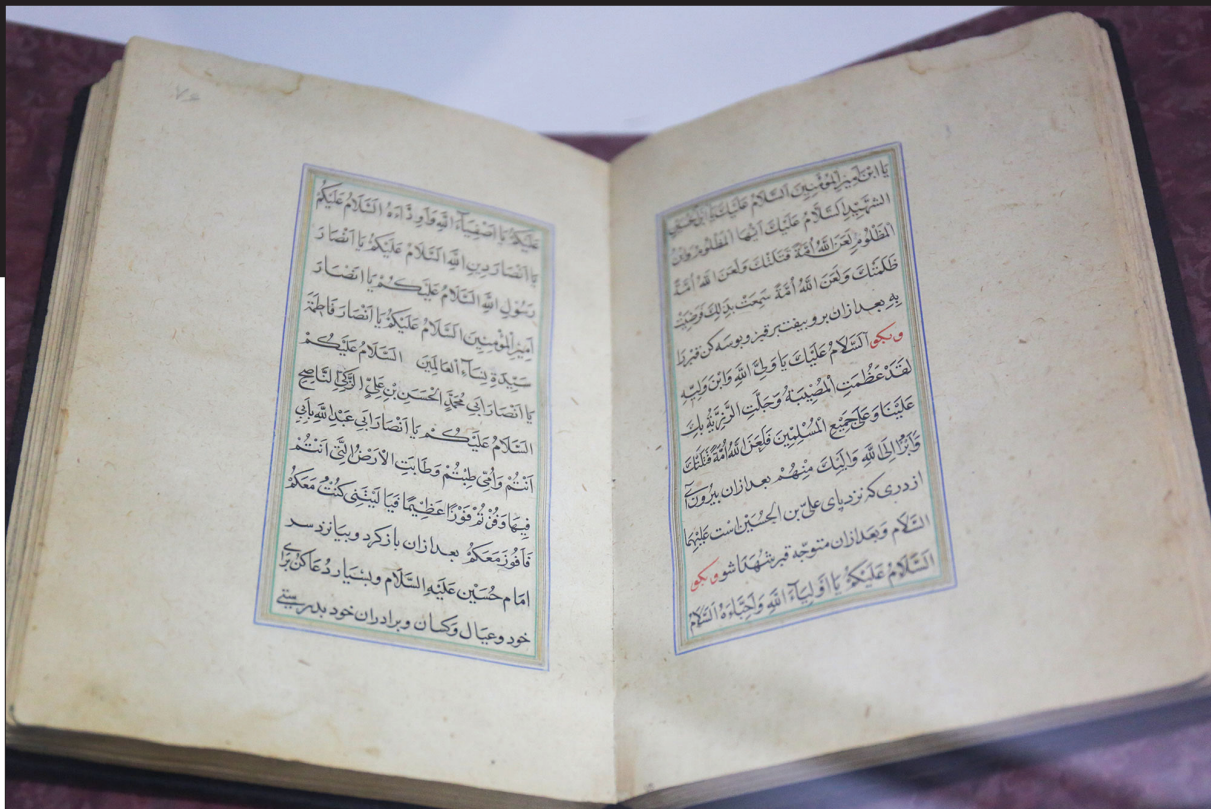 يا ابن امير المؤمنين السلام عليك يا ابن الحسين
الشهيد السلام عليك ايها المظلوم وابن
المظلوم لعن الله امة قتلتك ولعن الله امة
ظلمتك ولعن الله امة سمعت بذلك فرضيت
به بعد ازان برو بيفت بر قبر و بوسه كن قبر را
وبكو السَّلَامُ عَلَيْكَ يَا وَلِيَّ اللهِ وَابْنَ وَلِيِّهِ
لَقَدْ عَظُمَتِ الْمُصِيبَةُ وَجَلَّتِ الرَّزِيَّةُ بِكَ
عَلَيْنَا وَعَلَى جَمِيعِ الْمُسْلِمِينَ فَلَعَنَ اللهُ أُمَّةً قَتَلَتْكَ
وَأَبْرَأُ اِلَى اللهِ وَاِلَيْكَ مِنْهُمْ بعد ازان بيرون آى
از درى كه نزد پاى على بن الحسين است عليهما
السلام و بعد ازان متوجه قبر شهدا شو وبكو
السَّلَامُ عَلَيْكُمْ يَا اَوْلِيَآءَ اللهِ وَاَحِبَّاءَهُ السَّلَامُ
عَلَيْكُمْ يَا اَصْفِيَآءَ اللهِ وَاَوِدَّاءَهُ السَّلَامُ عَلَيْكُمْ
يَا اَنْصَارَ دِينِ اللهِ السَّلَامُ عَلَيْكُمْ يَا اَنْصَارَ
رَسُولِ اللهِ السَّلَامُ عَلَيْكُمْ يَا اَنْصَارَ
اَمِيرِ الْمُؤْمِنِينَ السَّلَامُ عَلَيْكُمْ يَا اَنْصَارَ فَاطِمَةَ
سَيِّدَةِ نِسَآءِ الْعَالَمِينَ السَّلَامُ عَلَيْكُمْ
يَا اَنْصَارَ اَبِى مُحَمَّدٍ الْحَسَنِ بْنِ عَلِيٍّ الزَّكِيِّ النَّاصِحِ
السَّلَامُ عَلَيْكُمْ يَا اَنْصَارَ اَبِى عَبْدِ اللهِ بِاَبِى
اَنْتُمْ وَاُمِّى طِبْتُمْ وَطَابَتِ الْاَرْضُ الَّتِى اَنْتُمْ
فِيهَا وَفُزْتُمْ فَوْزًا عَظِيمًا فَيَا لَيْتَنِى كُنْتُ مَعَكُمْ
فَاَفُوزَ مَعَكُمْ بعد ازان باز كرد و بيا نزد سر
امام حسين عليه السلام و بسيار دعا كن براى
خود و عيال و كسان و برادران خود بدرستى